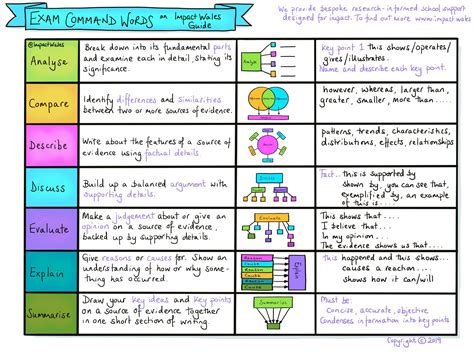 EXAM COMMAND WORDS
an Impact Wales
Guide
We provide bespoke research-informed school support
designed for impact. To find out more www.impact.wales
@ImpactWales
Analyse
Break down into its fundamental parts
and examine each in detail, stating its
significance.
Analyse
Key point 1 this shows/operates/
gives/illustrates.
Name and describe each key point.
Compare
Identify differences and similarities
between two or more sources of evidence.
however, whereas, larger than,
greater, smaller, more than.....
Describe
Write about the features of a source of
evidence using factual details.
patterns, trends, characteristics,
distributions, effects, relationships
Discuss
Build up a balanced argument with
supporting details.
Discuss
Fact... this is supported by
shown by, you can see that,
exemplified by, an example
of this is....
Evaluate
Make a judgement about or give an
opinion on a source of evidence,
backed up by supporting details.
Evaluate
This shows that....
I believe that...
In my opinion...
The evidence shows us that....
Explain
Give reasons or causes for. Show an
understanding of how or why some-
thing has occurred.
Reason
Cause
Reason
Cause
This happened and this shows...
causes a reaction....
shows how it can/will
Summarise
Draw your key ideas and key points
on a source of evidence together
in one short section of writing.
Summarise
Must be:
Concise, accurate, objective
Condenses information into key points
Copyright © 2019